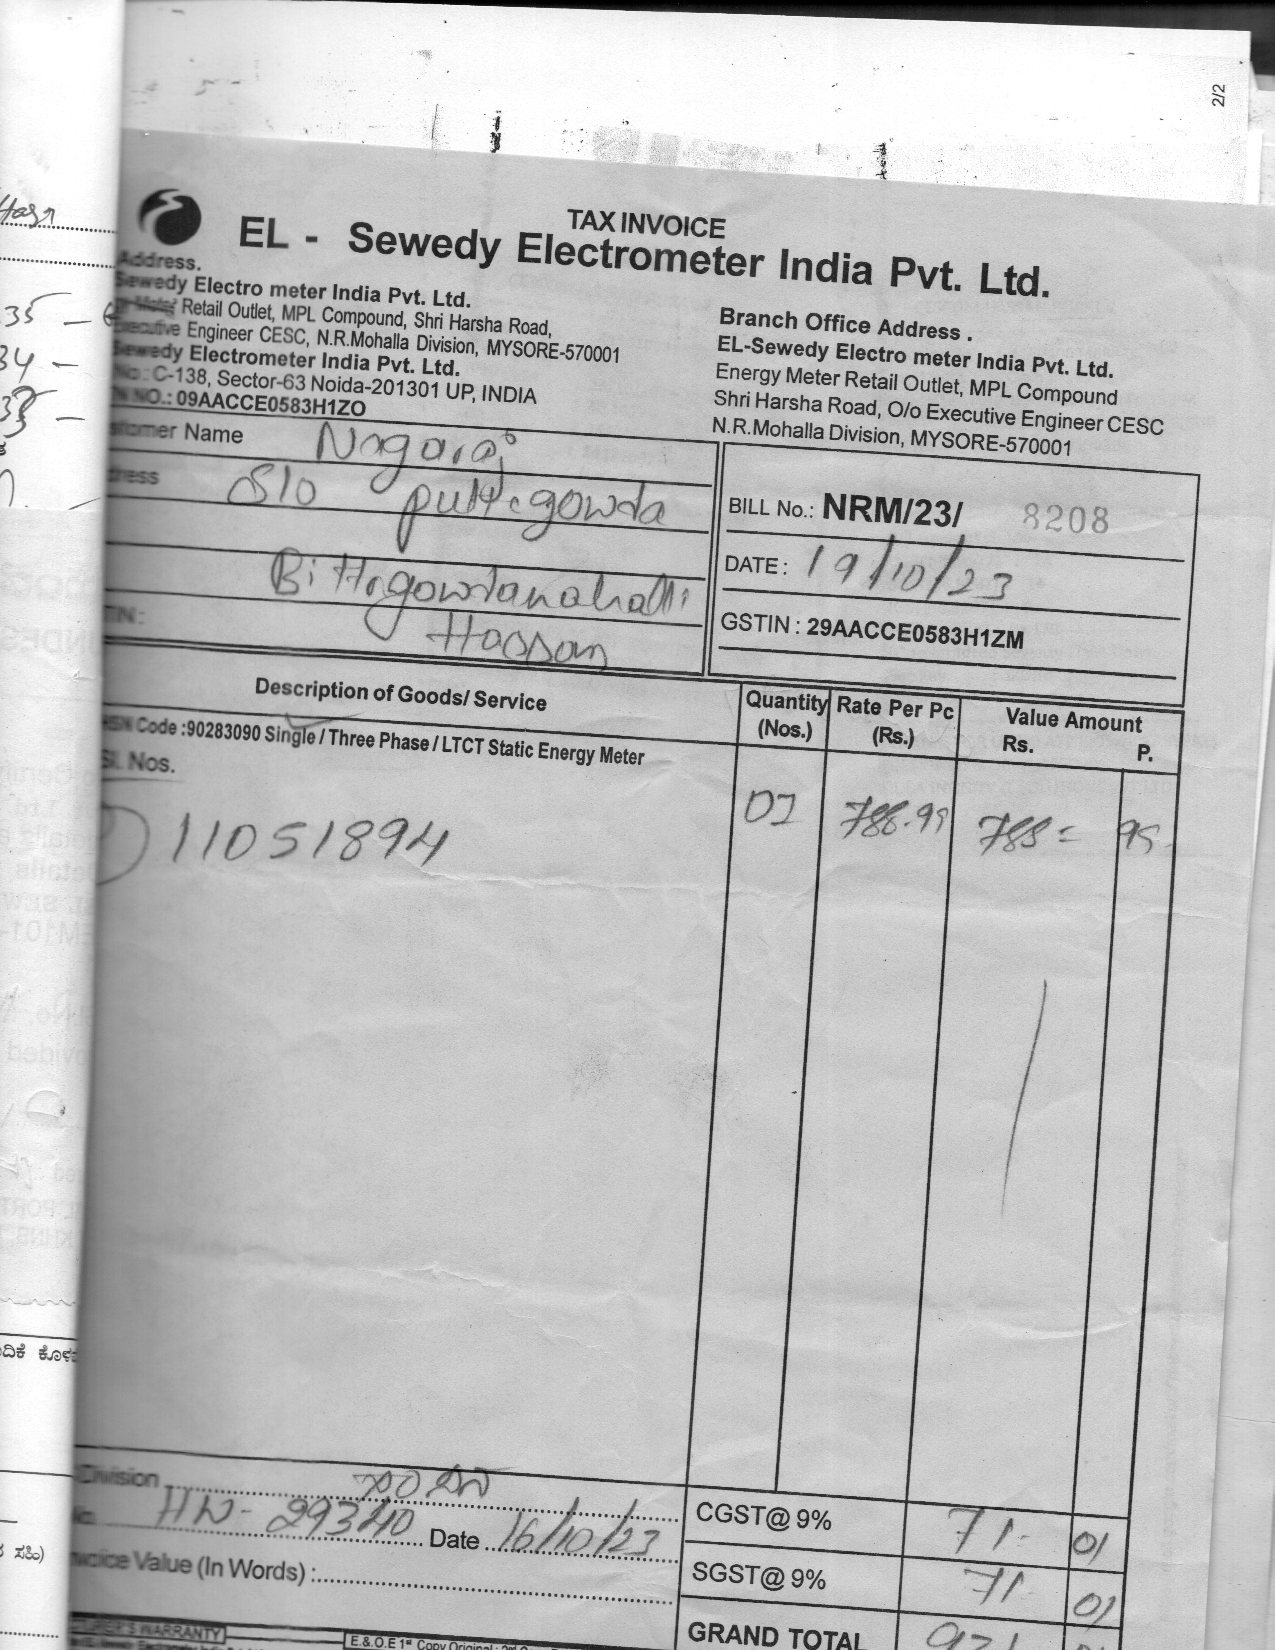 2/2
TAX INVOICE
EL - Sewedy Electrometer India Pvt. Ltd.
Address.
Sewedy Electro meter India Pvt. Ltd.
Retail Outlet, MPL Compound, Shri Harsha Road,
Executive Engineer CESC, N.R.Mohalla Division, MYSORE-570001
Sewedy Electrometer India Pvt. Ltd.
C-138, Sector-63 Noida-201301 UP, INDIA
NO.: 09AACCE0583H1ZO
Branch Office Address .
EL-Sewedy Electro meter India Pvt. Ltd.
Energy Meter Retail Outlet, MPL Compound
Shri Harsha Road, O/o Executive Engineer CESC
N.R.Mohalla Division, MYSORE-570001
stomer Name Nagaraj
ress S/o puttegowda
Bittogowdanahalli
TIN: Hassan
BILL No.: NRM/23/ 8208
DATE : 19/10/23
GSTIN : 29AACCE0583H1ZM
Description of Goods/ Service
Quantity (Nos.)
Rate Per Pc (Rs.)
Value Amount
Rs. P.
HSN Code :90283090 Single / Three Phase / LTCT Static Energy Meter
Sl. Nos.
11051894 01 788.99 788= 99
Division
HN- 29340 Date 16/10/23
Invoice Value (In Words) :
CGST@ 9% 71- 01
SGST@ 9% 71- 01
GRAND TOTAL 931
E.&.O.E 1st Copy Original